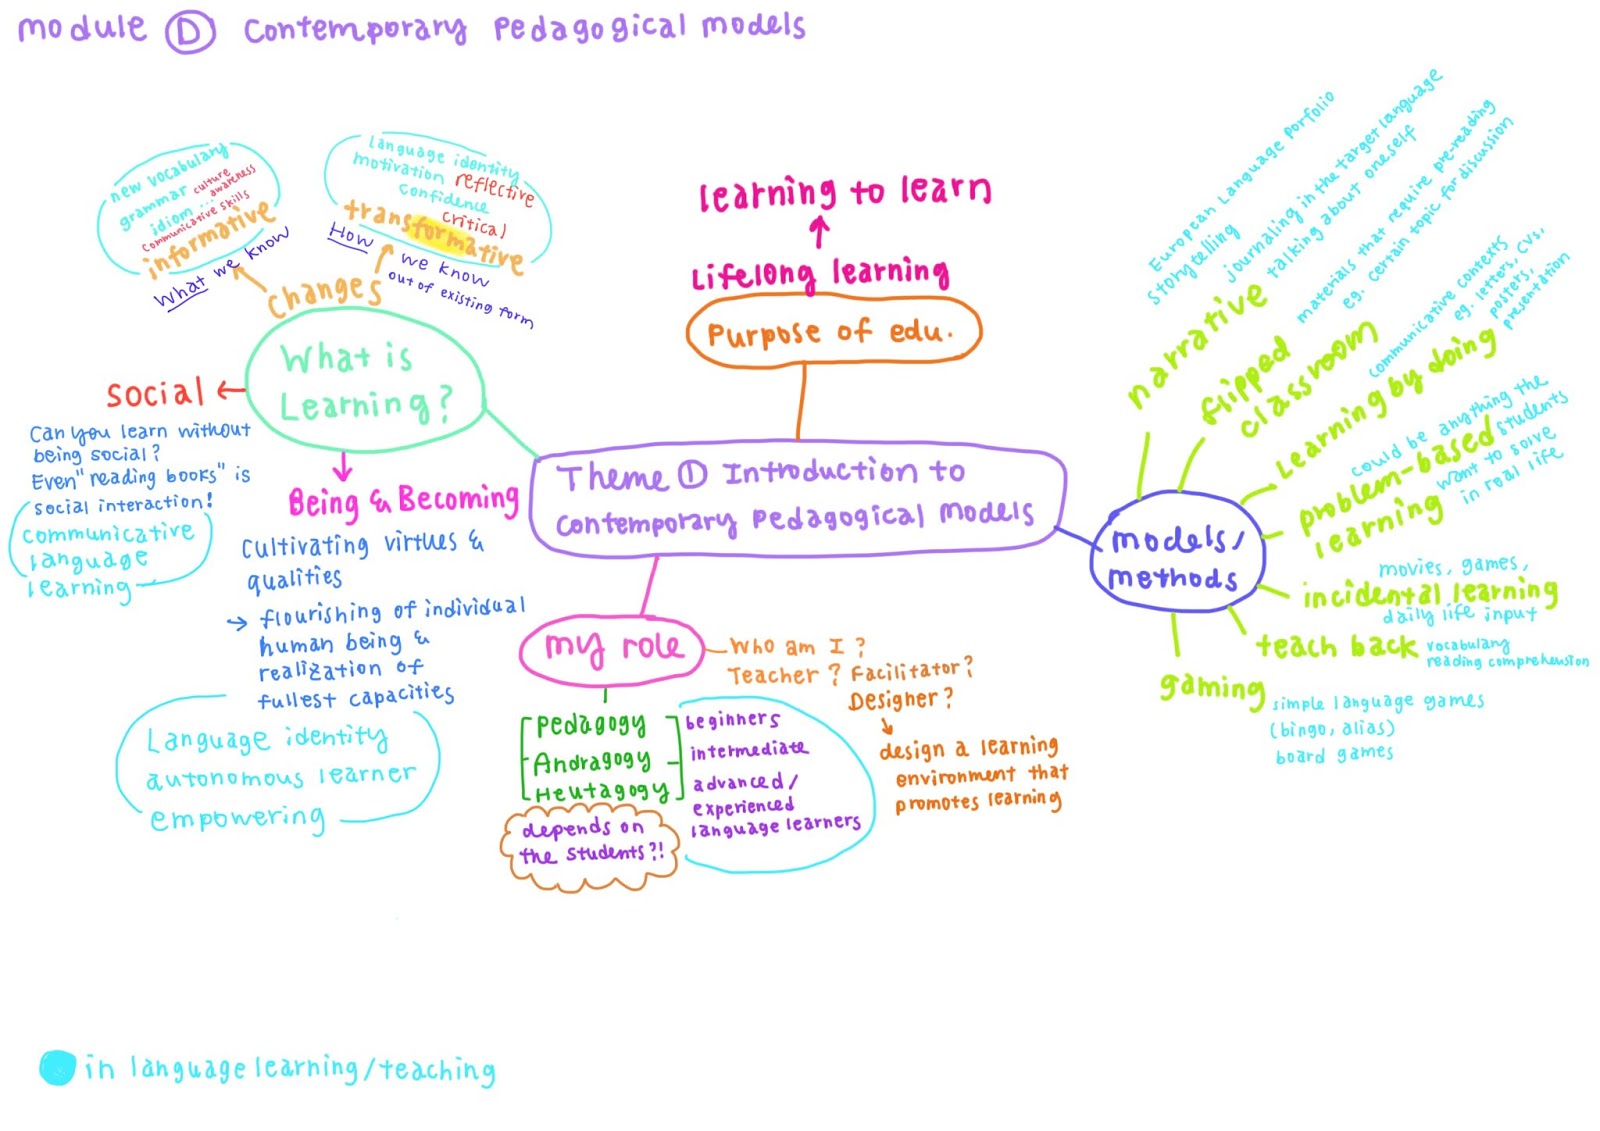 module ① Contemporary Pedagogical models
new vocabulary
grammar culture
awareness
idiom ...
communicative skills
informative
What we know
Language identity
motivation reflective
confidence
critical
transformative
How we know
out of existing form
changes
What is
Learning?
social ←
Can you learn without
being social?
Even "reading books" is
social interaction!
communicative
language
learning
Being & Becoming
cultivating virtues &
qualities
→ flourishing of individual
human being &
realization of
fullest capacities
Language identity
autonomous learner
empowering
learning to learn
Lifelong learning
Purpose of edu.
Theme ① Introduction to
contemporary Pedagogical Models
my role
Who am I?
Teacher? Facilitator?
Designer?
design a learning
environment that
promotes learning
Pedagogy
Andragogy
Heutagogy
beginners
intermediate
advanced/
experienced
language learners
depends on
the students?!
models/
methods
narrative
European Language porfolio
storytelling
journaling in the target language
talking about oneself
flipped
classroom
materials that require pre-reading
eg. certain topic for discussion
Learning by doing
communicative contexts
eg. letters, CVs,
posters,
presentation
problem-based
learning
could be anything the
students
want to solve
in real life
movies, games,
incidental learning
daily life input
teach back
vocabulary
reading comprehension
gaming
simple language games
(bingo, alias)
board games
in language learning/teaching